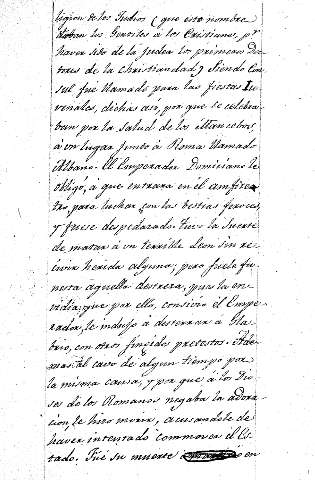 ligion de los Judios (que este nombre
daban los Gentiles à los Cristianos, pr
haver sido de la Judea los primeros Doc-
tores de la christiandad) Siendo Con-
sul fue llamado para las fiestas Iu-
venales, dichas así, por que se celebra-
ban por la salud de los Mancebos,
à un lugar junto à Roma llamado
Albano. El Emperador Domiciano le
obligó, à que entrara en el amfitea-
tro, para luchar con las bestias feroces,
y fuese despedazado. Tuvo la suerte
de matar à un terrible Leon sin re-
civir herida alguna; pero fuele fu-
nesta aquella destreza, pues la en-
vidia, que por ello, concivió el Empe-
rador, le indujo à desterrar à Gla-
brio, con otros fingidos pretestos. Ade-
mas al cavo de algun tiempo por
la misma causa, y por que à los Dio-
ses de los Romanos negaba la adora-
cion, le hizo morir, acusandole de
haver intentado commover el Es-
tado. Fué su muerte en